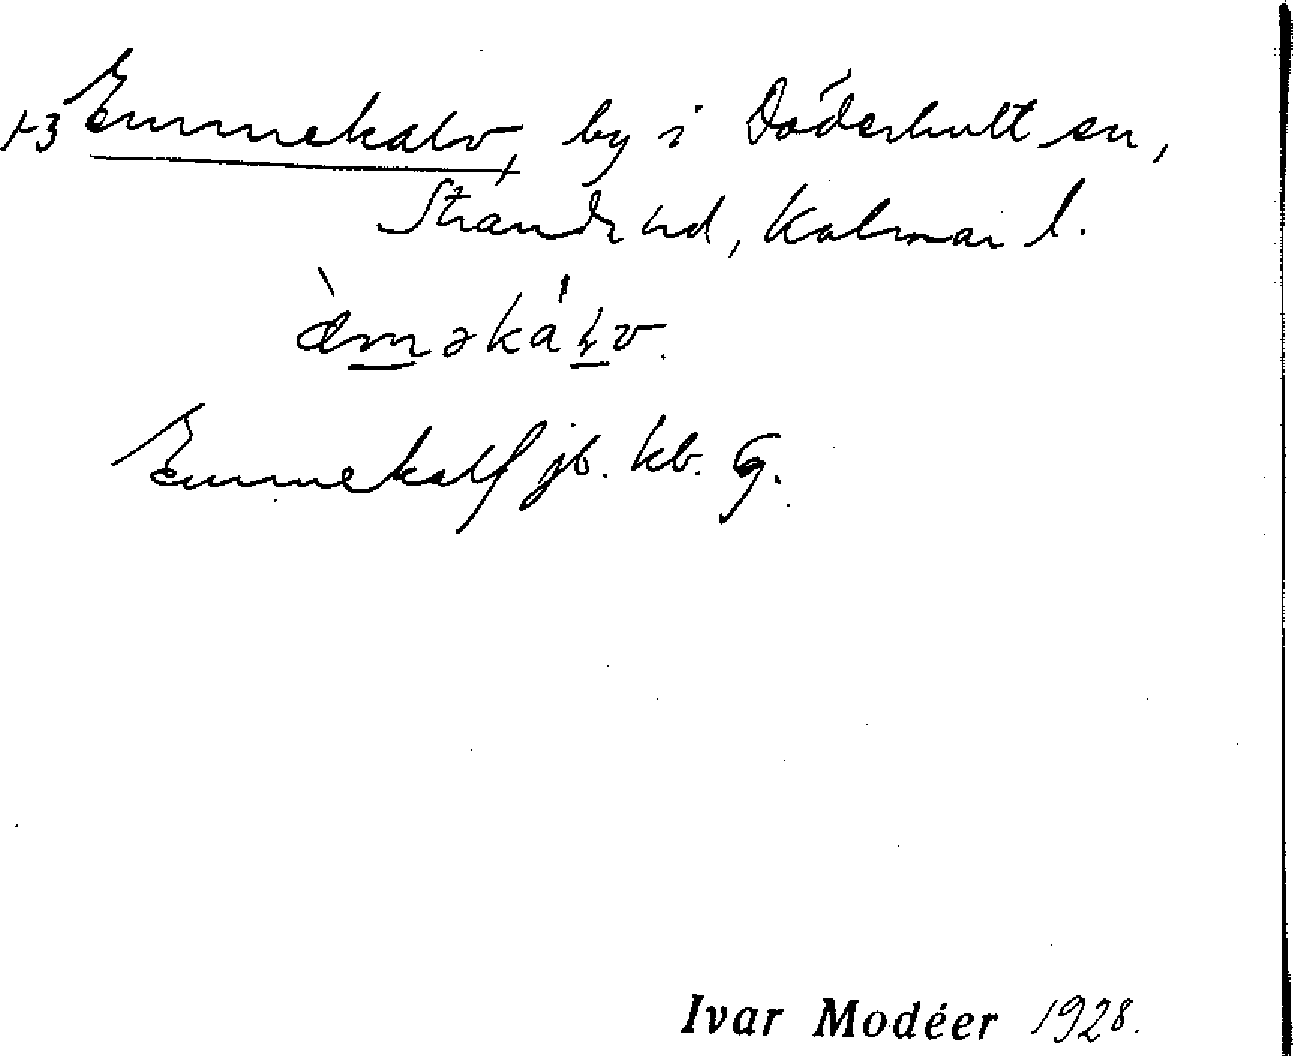 1-3 Emmekalv, by i Döderhult sn,
Strands hd, Kalmar l.
æ̀məkáḷv.
Emmekalf jb. kb. G.
Ivar Modéer 1928.